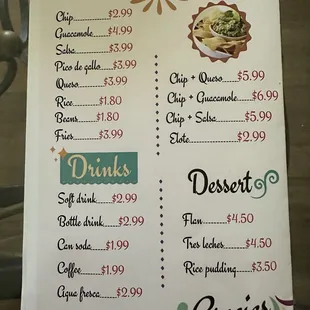 Chip..........$2.99
Guacamole......$4.99
Salsa..........$3.99
Pico de gallo...$3.99
Queso..........$3.99
Rice........$1.80
Beans.......$1.80
Fries.........$3.99
Drinks
Soft drink.....$2.99
Bottle drink.....$2.99
Can soda.....$1.99
Coffee........$1.99
Agua fresca.....$2.99
Chip + Queso......$5.99
Chip + Guacamole....$6.99
Chip + Salsa........$5.99
Elote..........$2.99
Dessert
Flan.........$4.50
Tres leches.......$4.50
Rice pudding.....$3.50